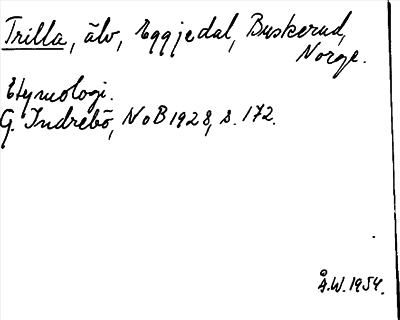 Trilla, älv, Eggjedal, Buskerud,
Norge.
Etymologi.
G. Indrebö, NoB 1928, s. 172.
Å.W. 1954.